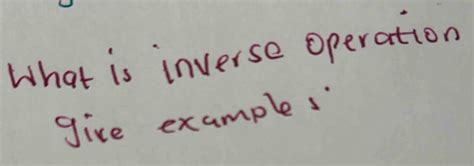 What is inverse operation
give examples.